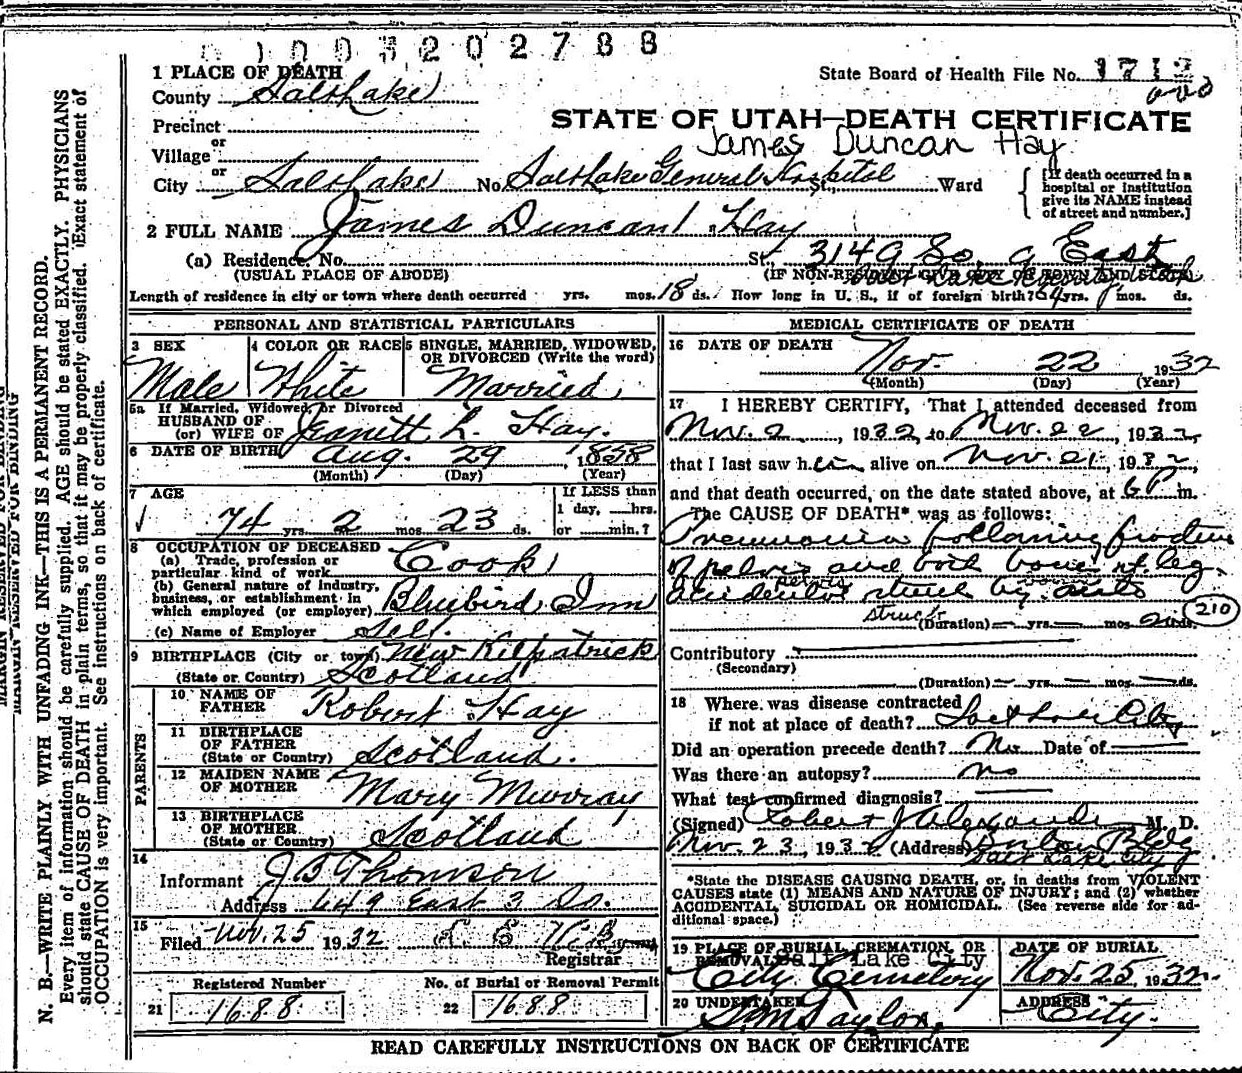 1003202788
1 PLACE OF DEATH
County Salt Lake
State Board of Health File No. 1712
Precinct
STATE OF UTAH—DEATH CERTIFICATE
James Duncan Hay
or
Village
or
City Salt Lake No. Salt Lake General Hospital St., Ward
[If death occurred in a hospital or institution give its NAME instead of street and number.]
2 FULL NAME James Duncan Hay
(a) Residence, No. St. 3149 So. 9 East
(USUAL PLACE OF ABODE) (IF NON-RESIDENT GIVE CITY OR TOWN AND STATE)
Salt Lake County
Length of residence in city or town where death occurred yrs. mos. 18 ds. How long in U. S., if of foreign birth? 64 yrs. mos. ds.
PERSONAL AND STATISTICAL PARTICULARS
3 SEX
Male
4 COLOR OR RACE
White
5 SINGLE, MARRIED, WIDOWED, OR DIVORCED (Write the word)
Married
5a If Married, Widowed, or Divorced
HUSBAND OF
(or) WIFE OF Jeanett L. Hay.
6 DATE OF BIRTH Aug. 29 1858
(Month) (Day) (Year)
7 AGE
74 yrs. 2 mos. 23 ds.
If LESS than
1 day, hrs.
or min.?
8 OCCUPATION OF DECEASED
(a) Trade, profession or
particular kind of work Cook
(b) General nature of Industry,
business, or establishment in
which employed (or employer) Bluebird Inn
(c) Name of Employer Self.
9 BIRTHPLACE (City or town) New Kilpatrick
(State or Country) Scotland
PARENTS
10 NAME OF FATHER Robert Hay
11 BIRTHPLACE OF FATHER (State or Country) Scotland.
12 MAIDEN NAME OF MOTHER Mary Murray
13 BIRTHPLACE OF MOTHER (State or Country) Scotland
14
Informant J B Thomson
Address 649 East 3 So.
15
Filed Nov. 25 1932
Registrar
Registered Number
21 1688
No. of Burial or Removal Permit
22 1688
MEDICAL CERTIFICATE OF DEATH
16 DATE OF DEATH
Nov. 22 1932
(Month) (Day) (Year)
17 I HEREBY CERTIFY, That I attended deceased from
Nov. 2, 1932, to Nov. 22, 1932,
that I last saw him alive on Nov 21, 1932,
and that death occurred, on the date stated above, at 6 P m.
The CAUSE OF DEATH* was as follows:
Pneumonia following fracture
of pelvis and both bones of leg.
pelvis
accidental struck by auto
struck
(Duration) yrs. mos. ds.
210
Contributory
(Secondary)
(Duration) yrs. mos. ds.
18 Where was disease contracted
if not at place of death? Salt Lake City
Did an operation precede death? No Date of
Was there an autopsy? no
What test confirmed diagnosis?
(Signed) Robert J Alexander M. D.
Nov. 23, 1932 (Address) Boston Bldg
Salt Lake City
*State the DISEASE CAUSING DEATH, or, in deaths from VIOLENT
CAUSES state (1) MEANS AND NATURE OF INJURY; and (2) whether
ACCIDENTAL SUICIDAL OR HOMICIDAL. (See reverse side for ad-
ditional space.)
19 PLACE OF BURIAL, CREMATION, OR
REMOVAL Salt Lake City
City Cemetery
DATE OF BURIAL
Nov. 25, 1932.
20 UNDERTAKER
S. M. Taylor,
ADDRESS
City.
READ CAREFULLY INSTRUCTIONS ON BACK OF CERTIFICATE
MARGIN RESERVED FOR BINDING
N. B.—WRITE PLAINLY WITH UNFADING INK—THIS IS A PERMANENT RECORD.
Every item of information should be carefully supplied. AGE should be stated EXACTLY. PHYSICIANS
should state CAUSE OF DEATH in plain terms, so that it may be properly classified. Exact statement of
OCCUPATION is very important. See instructions on back of certificate.